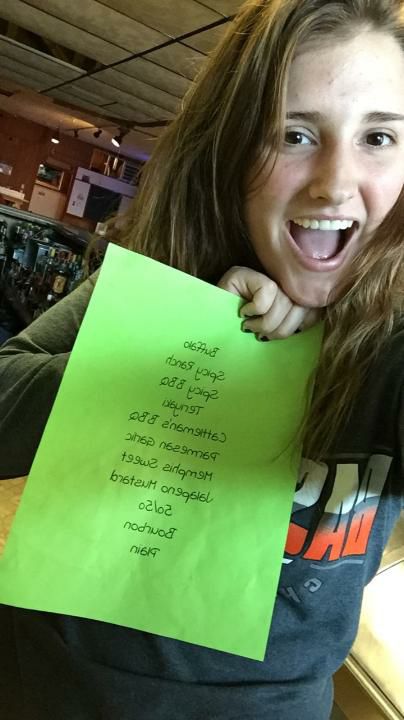 Buffalo
Spicy Ranch
Spicy BBQ
Teriyaki
Cattleman's BBQ
Parmesan Garlic
Memphis Sweet
Jalapeno Mustard
50/50
Bourbon
Plain